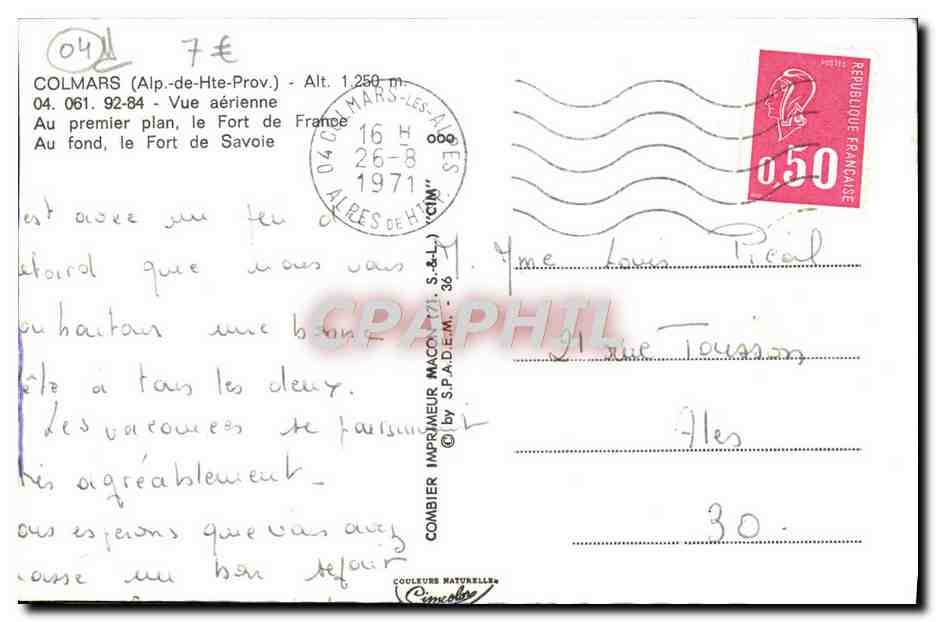 04
7 €
COLMARS (Alp.-de-Hte-Prov.) - Alt. 1.250 m.
04. 061. 92-84 - Vue aérienne
Au premier plan, le Fort de France
Au fond, le Fort de Savoie
04 COLMARS-LES-ALPES
16 H
26-8
1971
ALPES DE HTE P.
POSTES
REPUBLIQUE FRANCAISE
0,50
est avec un peu d
etard que nous vous
ouhaitons une bonne
ête à tous les deux.
Les vacances se poursuivent
très agréablement -
ous esperons que vous avez
passé un bon séjour
COMBIER IMPRIMEUR MACON (71. S.-&-L.) "CIM"
© by S.P.A.D.E.M. - 36
CPAPHIL
M. Mme Louis
21 rue
Ales
30.
COULEURS NATURELLES
Cimcolor